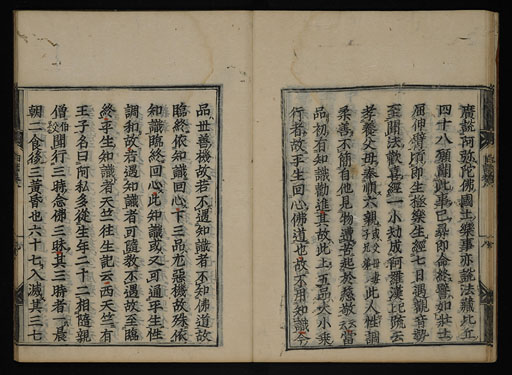 廣説阿弥陀佛國土樂事亦説法藏比丘
四十八願聞此事已尋即命終譬如壯士
屈伸臂頃即生極樂生經七日遇觀音勢
至聞法歡喜經一小劫成阿羅漢比疏云
孝養父母奉順六親此人性調
柔善不簡自他見物遭苦起於慈敬當
品初有知識勸進其故此上五品大小乘
行者故平生回心佛道也故不用知識今
品世善機故若不遇知識者不知佛道故
臨終依知識回心下三品尤惡機故殊依
知識臨終回心此知識或又可通平生性
調和故若遇知識者可隨教不遇故至臨
終平生知識者天竺往生記云西天竺有
王子名曰阿私多從生年二十二相隨親
僧聞行三時念佛三昧其三時者一晨
朝二食後三黄昏也六十七入滅其三七